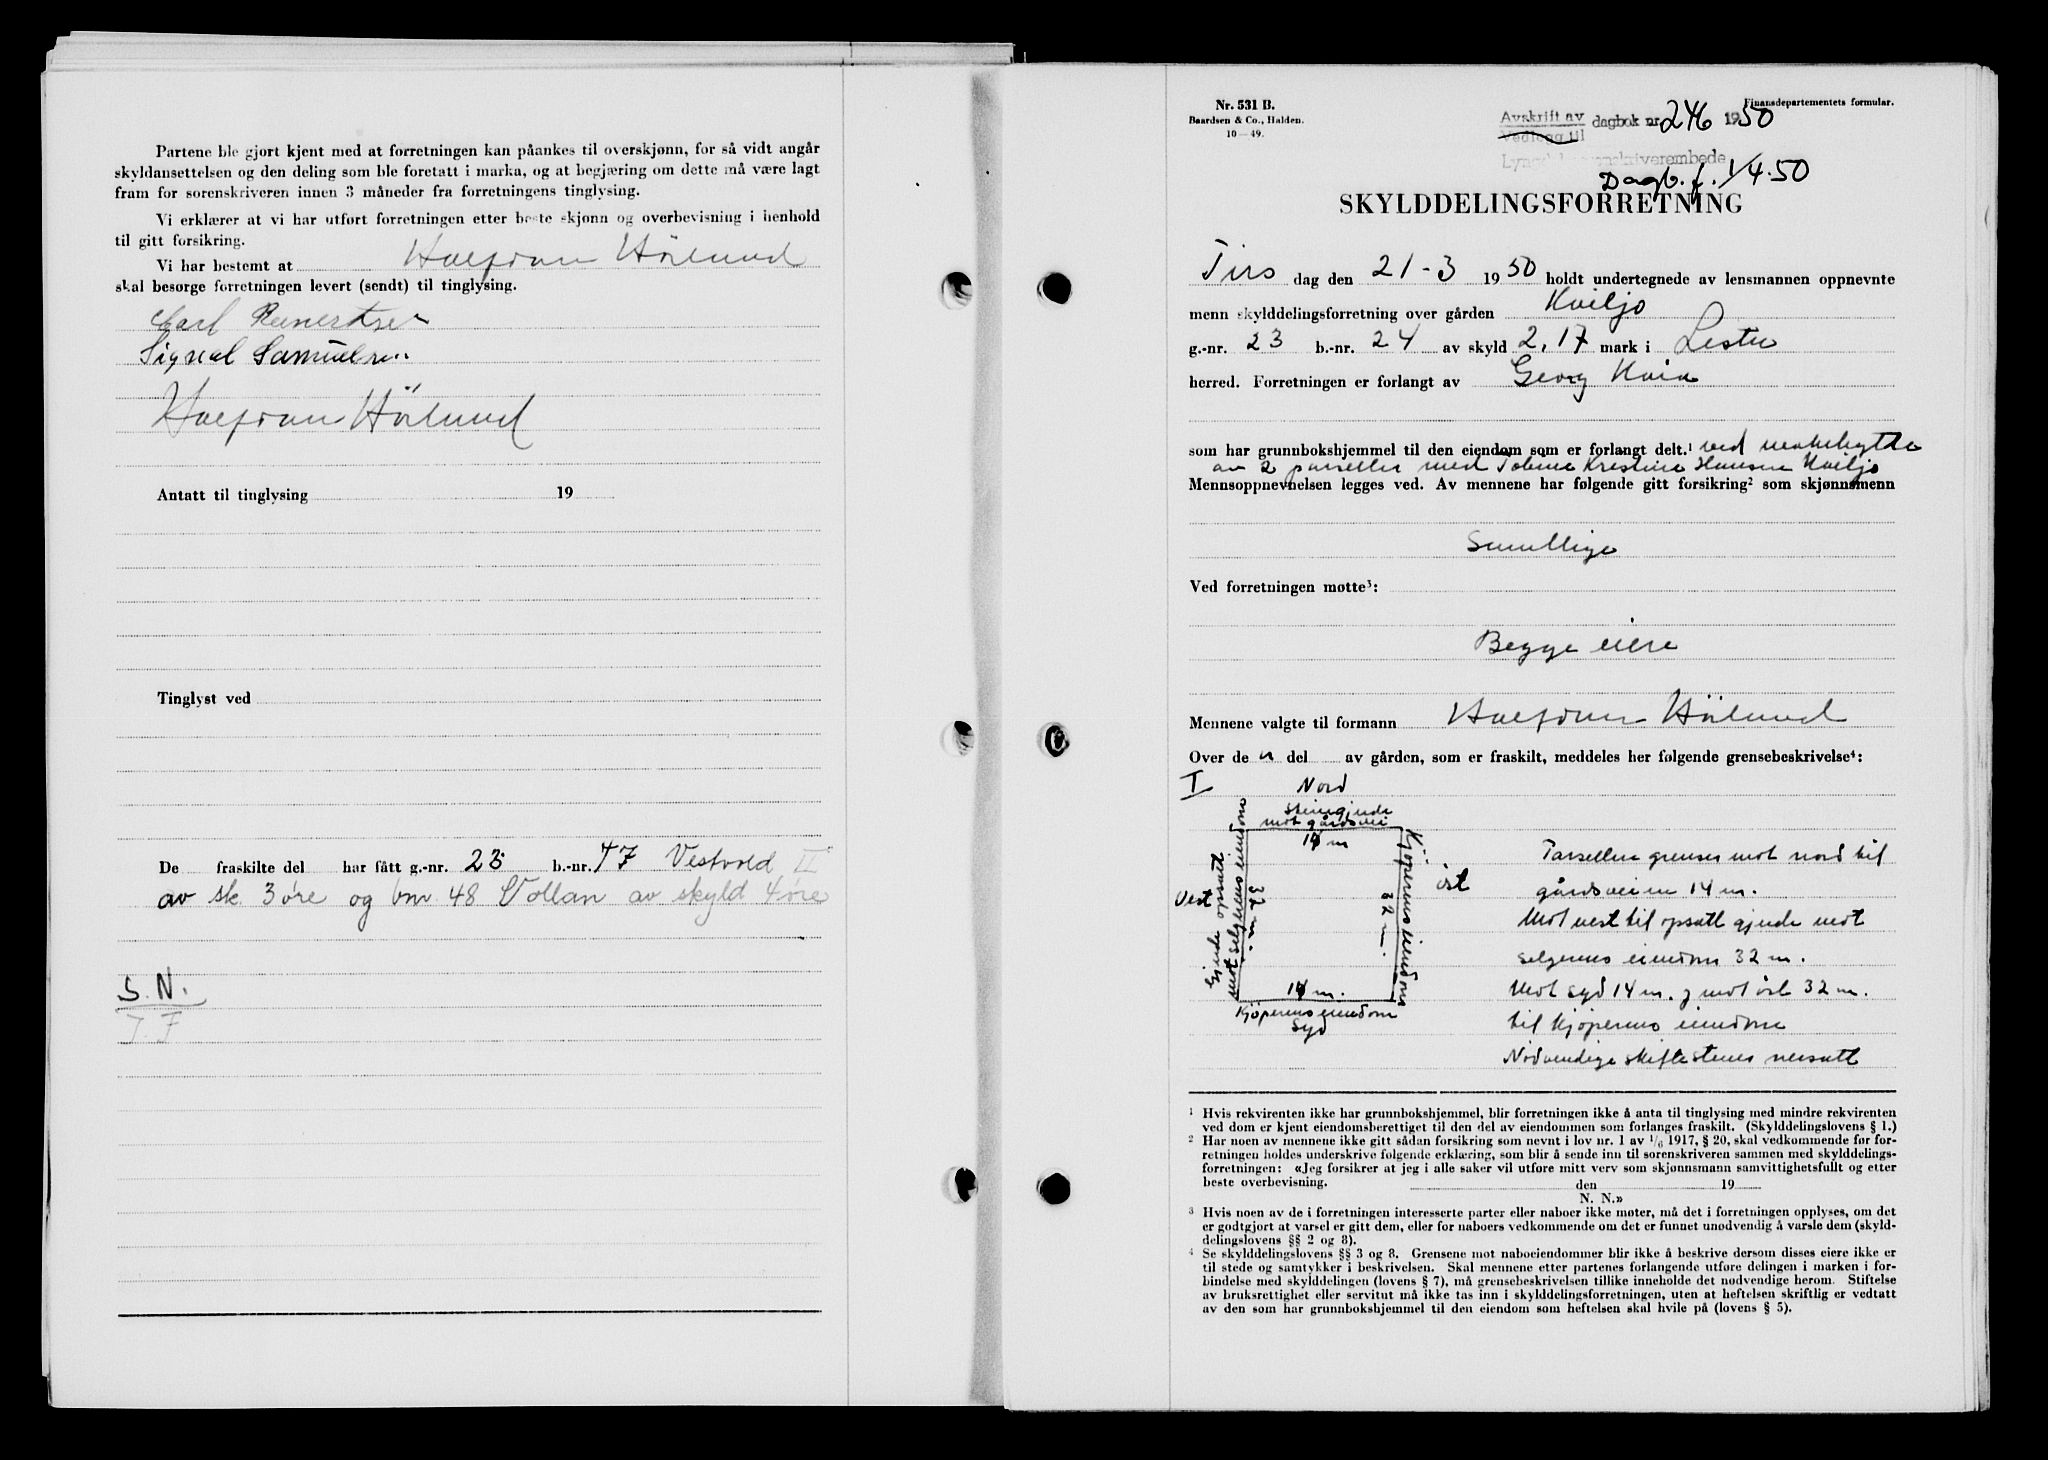 Partene ble gjort kjent med at forretningen kan påankes til overskjønn, for så vidt angår
skyldansettelsen og den deling som ble foretatt i marka, og at begjæring om dette må være lagt
fram for sorenskriveren innen 3 måneder fra forretningens tinglysing.
Vi erklærer at vi har utført forretningen etter beste skjønn og overbevisning i henhold
til gitt forsikring.
Vi har bestemt at Halfdan Hörlund
skal besørge forretningen levert (sendt) til tinglysing.
Carl Reinertsen
Sigvał Samuelsen
Halfdan Hörlund
Antatt til tinglysing 19
Tinglyst ved
De fraskilte del har fått g.-nr. 23 b.-nr. 47 Vestvold II
av sk. 3 øre og bnr 48 Vollan av skyld 4 øre
S. N.
T. F
Nr. 531 B.
Baardsen & Co., Halden.
10—49.
Finansdepartementets formular.
Avskrift av
Vedlegg til
dagbok nr 246 1950
Lyngdal sorenskriverembede
Dagb. f. 1/4.50
SKYLDDELINGSFORRETNING
Tirs dag den 21-3 1950 holdt undertegnede av lensmannen oppnevnte
menn skylddelingsforretning over gården Kviljo
g.-nr. 23 b.-nr. 24 av skyld 2,17 mark i Lista
herred. Forretningen er forlangt av Georg
som har grunnbokshjemmel til den eiendom som er forlangt delt.¹ ved makebytte
av 2 parseller med Toline Kristine Hansen Kviljo
Mennsoppnevnelsen legges ved. Av mennene har følgende gitt forsikring² som skjønnsmenn
Samtlige
Ved forretningen møtte³:
Begge eiere
Mennene valgte til formann Halfdan Hörlund
Over de n del av gården, som er fraskilt, meddeles her følgende grensebeskrivelse⁴:
I
Nord
steingjerde
mot gårdsvei
14 m
Vest
Gjerde opsatt
mot selgerens eiendom
32 m.
32 m.
Kjøperens eiendom
öst
14 m.
Kjøperens eiendom
Syd
Parsellen grenser mot nord til
gårdsveien 14 m.
Mot vest til opsatt gjerde mot
selgerens eiendom 32 m.
Mot syd 14 m. og mot öst 32 m.
til kjøperens eiendom
Nödvendige skiftestener nersatt
¹ Hvis rekvirenten ikke har grunnbokshjemmel, blir forretningen ikke å anta til tinglysing med mindre rekvirenten
ved dom er kjent eiendomsberettiget til den del av eiendommen som forlanges fraskilt. (Skylddelingslovens § 1.)
² Har noen av mennene ikke gitt sådan forsikring som nevnt i lov nr. 1 av 1/6 1917, § 20, skal vedkommende før for-
retningen holdes underskrive følgende erklæring, som blir å sende inn til sorenskriveren sammen med skylddelings-
forretningen: «Jeg forsikrer at jeg i alle saker vil utføre mitt verv som skjønnsmann samvittighetsfullt og etter
beste overbevisning. den 19
N. N.»
³ Hvis noen av de i forretningen interesserte parter eller naboer ikke møter, må det i forretningen opplyses, om det
er godtgjort at varsel er gitt dem, eller for naboers vedkommende om det er funnet unødvendig å varsle dem (skyld-
delingslovens §§ 2 og 8).
⁴ Se skylddelingslovens §§ 3 og 8. Grensene mot naboeiendommer blir ikke å beskrive dersom disses eiere ikke er
til stede og samtykker i beskrivelsen. Skal mennene etter partenes forlangende utføre delingen i marken i for-
bindelse med skylddelingen (lovens § 7), må grensebeskrivelsen tillike inneholde det nødvendige herom. Stiftelse
av bruksrettighet eller servitut må ikke tas inn i skylddelingsforretningen, uten at heftelsen skriftlig er vedtatt
av den som har grunnbokshjemmel til den eiendom som heftelsen skal hvile på (lovens § 5).